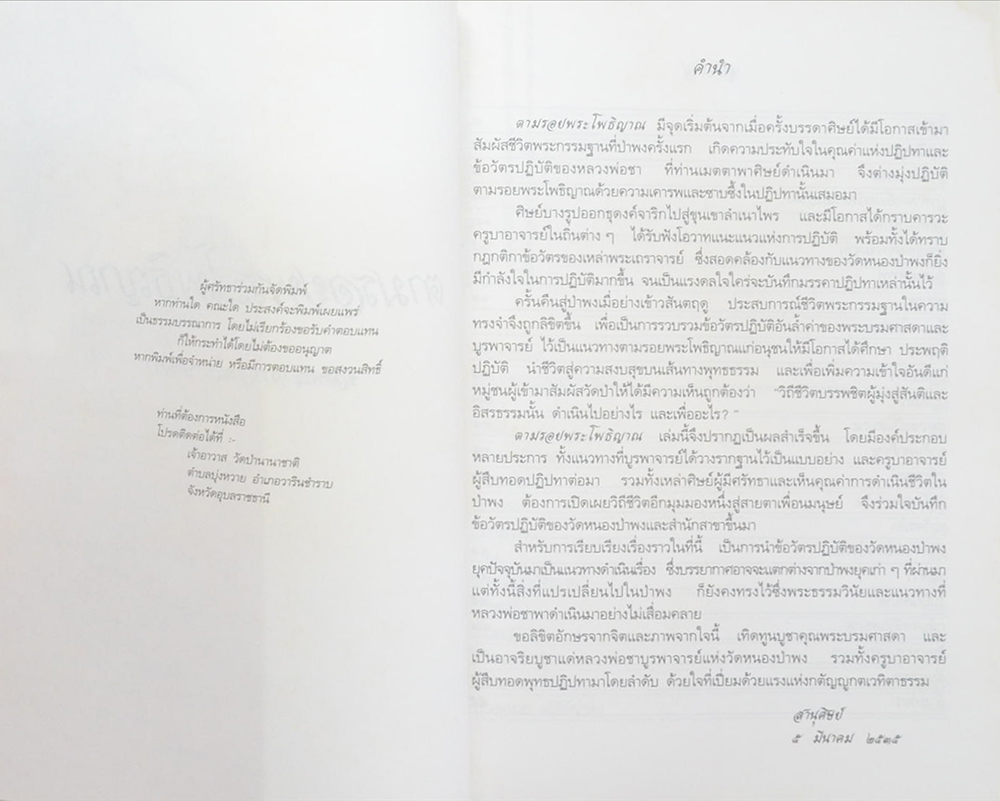 ผู้ศรัทธาร่วมกันจัดพิมพ์
หากท่านใด คณะใด ประสงค์จะพิมพ์เผยแพร่
เป็นธรรมบรรณาการ โดยไม่เรียกร้องขอรับคำตอบแทน
ก็ให้กระทำได้โดยไม่ต้องขออนุญาต
หากพิมพ์เพื่อจำหน่าย หรือมีการตอบแทน ขอสงวนสิทธิ์
ท่านที่ต้องการหนังสือ
โปรดติดต่อได้ที่ :-
เจ้าอาวาส วัดป่านานาชาติ
ตำบลบุ่งหวาย อำเภอวารินชำราบ
จังหวัดอุบลราชธานี
คำนำ
ตามรอยพระโพธิญาณ มีจุดเริ่มต้นจากเมื่อครั้งบรรดาศิษย์ได้มีโอกาสเข้ามา
สัมผัสชีวิตพระกรรมฐานที่ป่าพงครั้งแรก เกิดความประทับใจในคุณค่าแห่งปฏิปทาและ
ข้อวัตรปฏิบัติของหลวงพ่อชา ที่ท่านเมตตาพาศิษย์ดำเนินมา จึงต่างมุ่งปฏิบัติ
ตามรอยพระโพธิญาณด้วยความเคารพและซาบซึ้งในปฏิปทานั้นเสมอมา
ศิษย์บางรูปออกธุดงค์จาริกไปสู่ขุนเขาลำเนาไพร และมีโอกาสได้กราบคารวะ
ครูบาอาจารย์ในถิ่นต่าง ๆ ได้รับฟังโอวาทแนะแนวแห่งการปฏิบัติ พร้อมทั้งได้ทราบ
กฎกติกาข้อวัตรของเหล่าพระเถราจารย์ ซึ่งสอดคล้องกับแนวทางของวัดหนองป่าพงก็ยิ่ง
มีกำลังใจในการปฏิบัติมากขึ้น จนเป็นแรงดลใจใคร่จะบันทึกมรรคาปฏิปทาเหล่านั้นไว้
ครั้นคืนสู่ป่าพงเมื่อย่างเข้าวสันตฤดู ประสบการณ์ชีวิตพระกรรมฐานในความ
ทรงจำจึงถูกลิขิตขึ้น เพื่อเป็นการรวบรวมข้อวัตรปฏิบัติอันล้ำค่าของพระบรมศาสดาและ
บูรพาจารย์ ไว้เป็นแนวทางตามรอยพระโพธิญาณแก่อนุชนให้มีโอกาสได้ศึกษา ประพฤติ
ปฏิบัติ นำชีวิตสู่ความสงบสุขบนเส้นทางพุทธธรรม และเพื่อเพิ่มความเข้าใจอันดีแก่
หมู่ชนผู้เข้ามาสัมผัสวัดป่าให้ได้มีความเห็นถูกต้องว่า "วิถีชีวิตบรรพชิตผู้มุ่งสู่สันติและ
อิสรธรรมนั้น ดำเนินไปอย่างไร และเพื่ออะไร?"
ตามรอยพระโพธิญาณ เล่มนี้จึงปรากฏเป็นผลสำเร็จขึ้น โดยมีองค์ประกอบ
หลายประการ ทั้งแนวทางที่บูรพาจารย์ได้วางรากฐานไว้เป็นแบบอย่าง และครูบาอาจารย์
ผู้สืบทอดปฏิปทาต่อมา รวมทั้งเหล่าศิษย์ผู้มีศรัทธาและเห็นคุณค่าการดำเนินชีวิตใน
ป่าพง ต้องการเปิดเผยวิถีชีวิตอีกมุมมองหนึ่งสู่สายตาเพื่อนมนุษย์ จึงร่วมใจบันทึก
ข้อวัตรปฏิบัติของวัดหนองป่าพงและสำนักสาขาขึ้นมา
สำหรับการเรียบเรียงเรื่องราวในที่นี้ เป็นการนำข้อวัตรปฏิบัติของวัดหนองป่าพง
ยุคปัจจุบันมาเป็นแนวทางดำเนินเรื่อง ซึ่งบรรยากาศอาจจะแตกต่างจากป่าพงยุคเก่า ๆ ที่ผ่านมา
แต่ทั้งนี้สิ่งที่แปรเปลี่ยนไปในป่าพง ก็ยังคงทรงไว้ซึ่งพระธรรมวินัยและแนวทางที่
หลวงพ่อชาพาดำเนินมาอย่างไม่เสื่อมคลาย
ขอลิขิตอักษรจากจิตและภาพจากใจนี้ เทิดทูนบูชาคุณพระบรมศาสดา และ
เป็นอาจริยบูชาแด่หลวงพ่อชาบูรพาจารย์แห่งวัดหนองป่าพง รวมทั้งครูบาอาจารย์
ผู้สืบทอดพุทธปฏิปทามาโดยลำดับ ด้วยใจที่เปี่ยมด้วยแรงแห่งกตัญญูกตเวทิตาธรรม
สานุศิษย์
๕ มีนาคม ๒๕๓๕